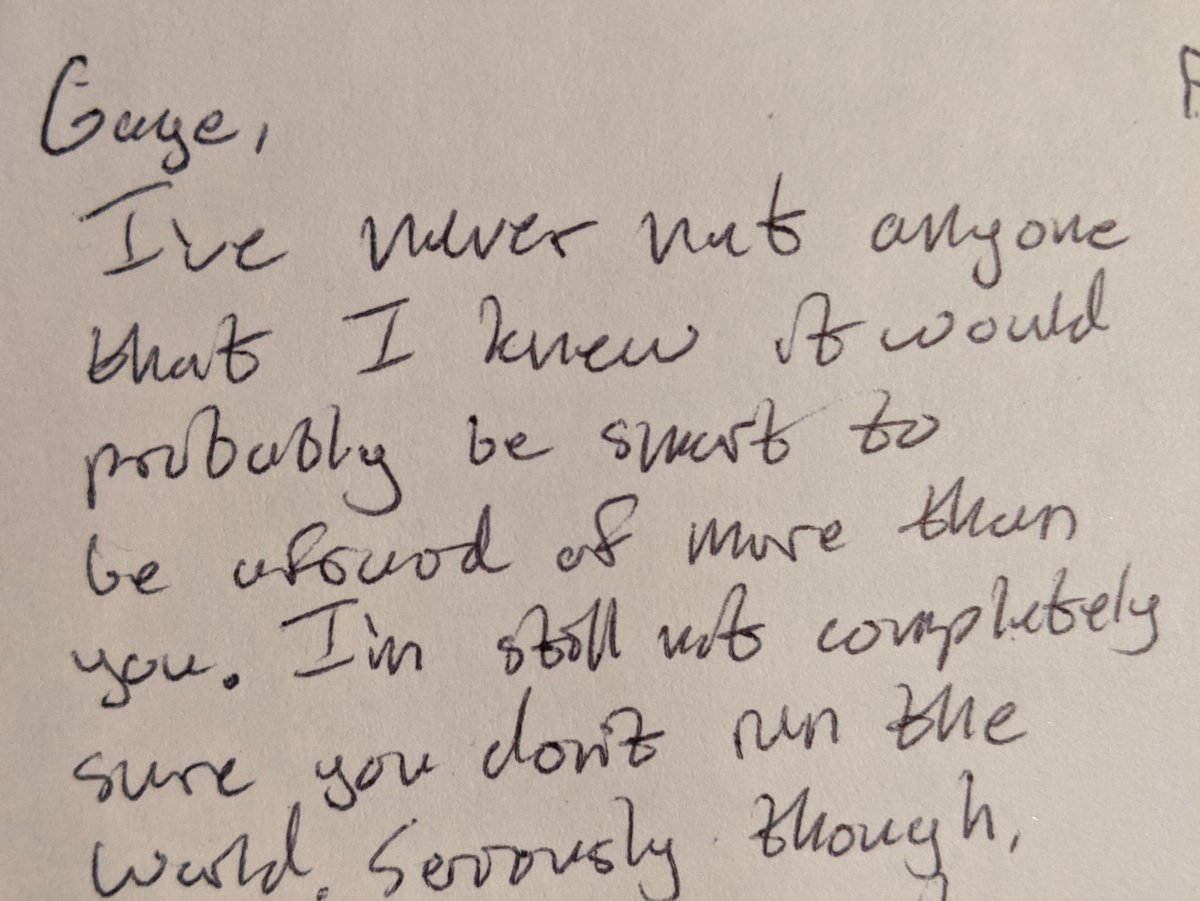 Gaye,
I've never met anyone
that I knew it would
probably be smart to
be afraid of more than
you. I'm still not completely
sure you don't run the
world. Seriously though,